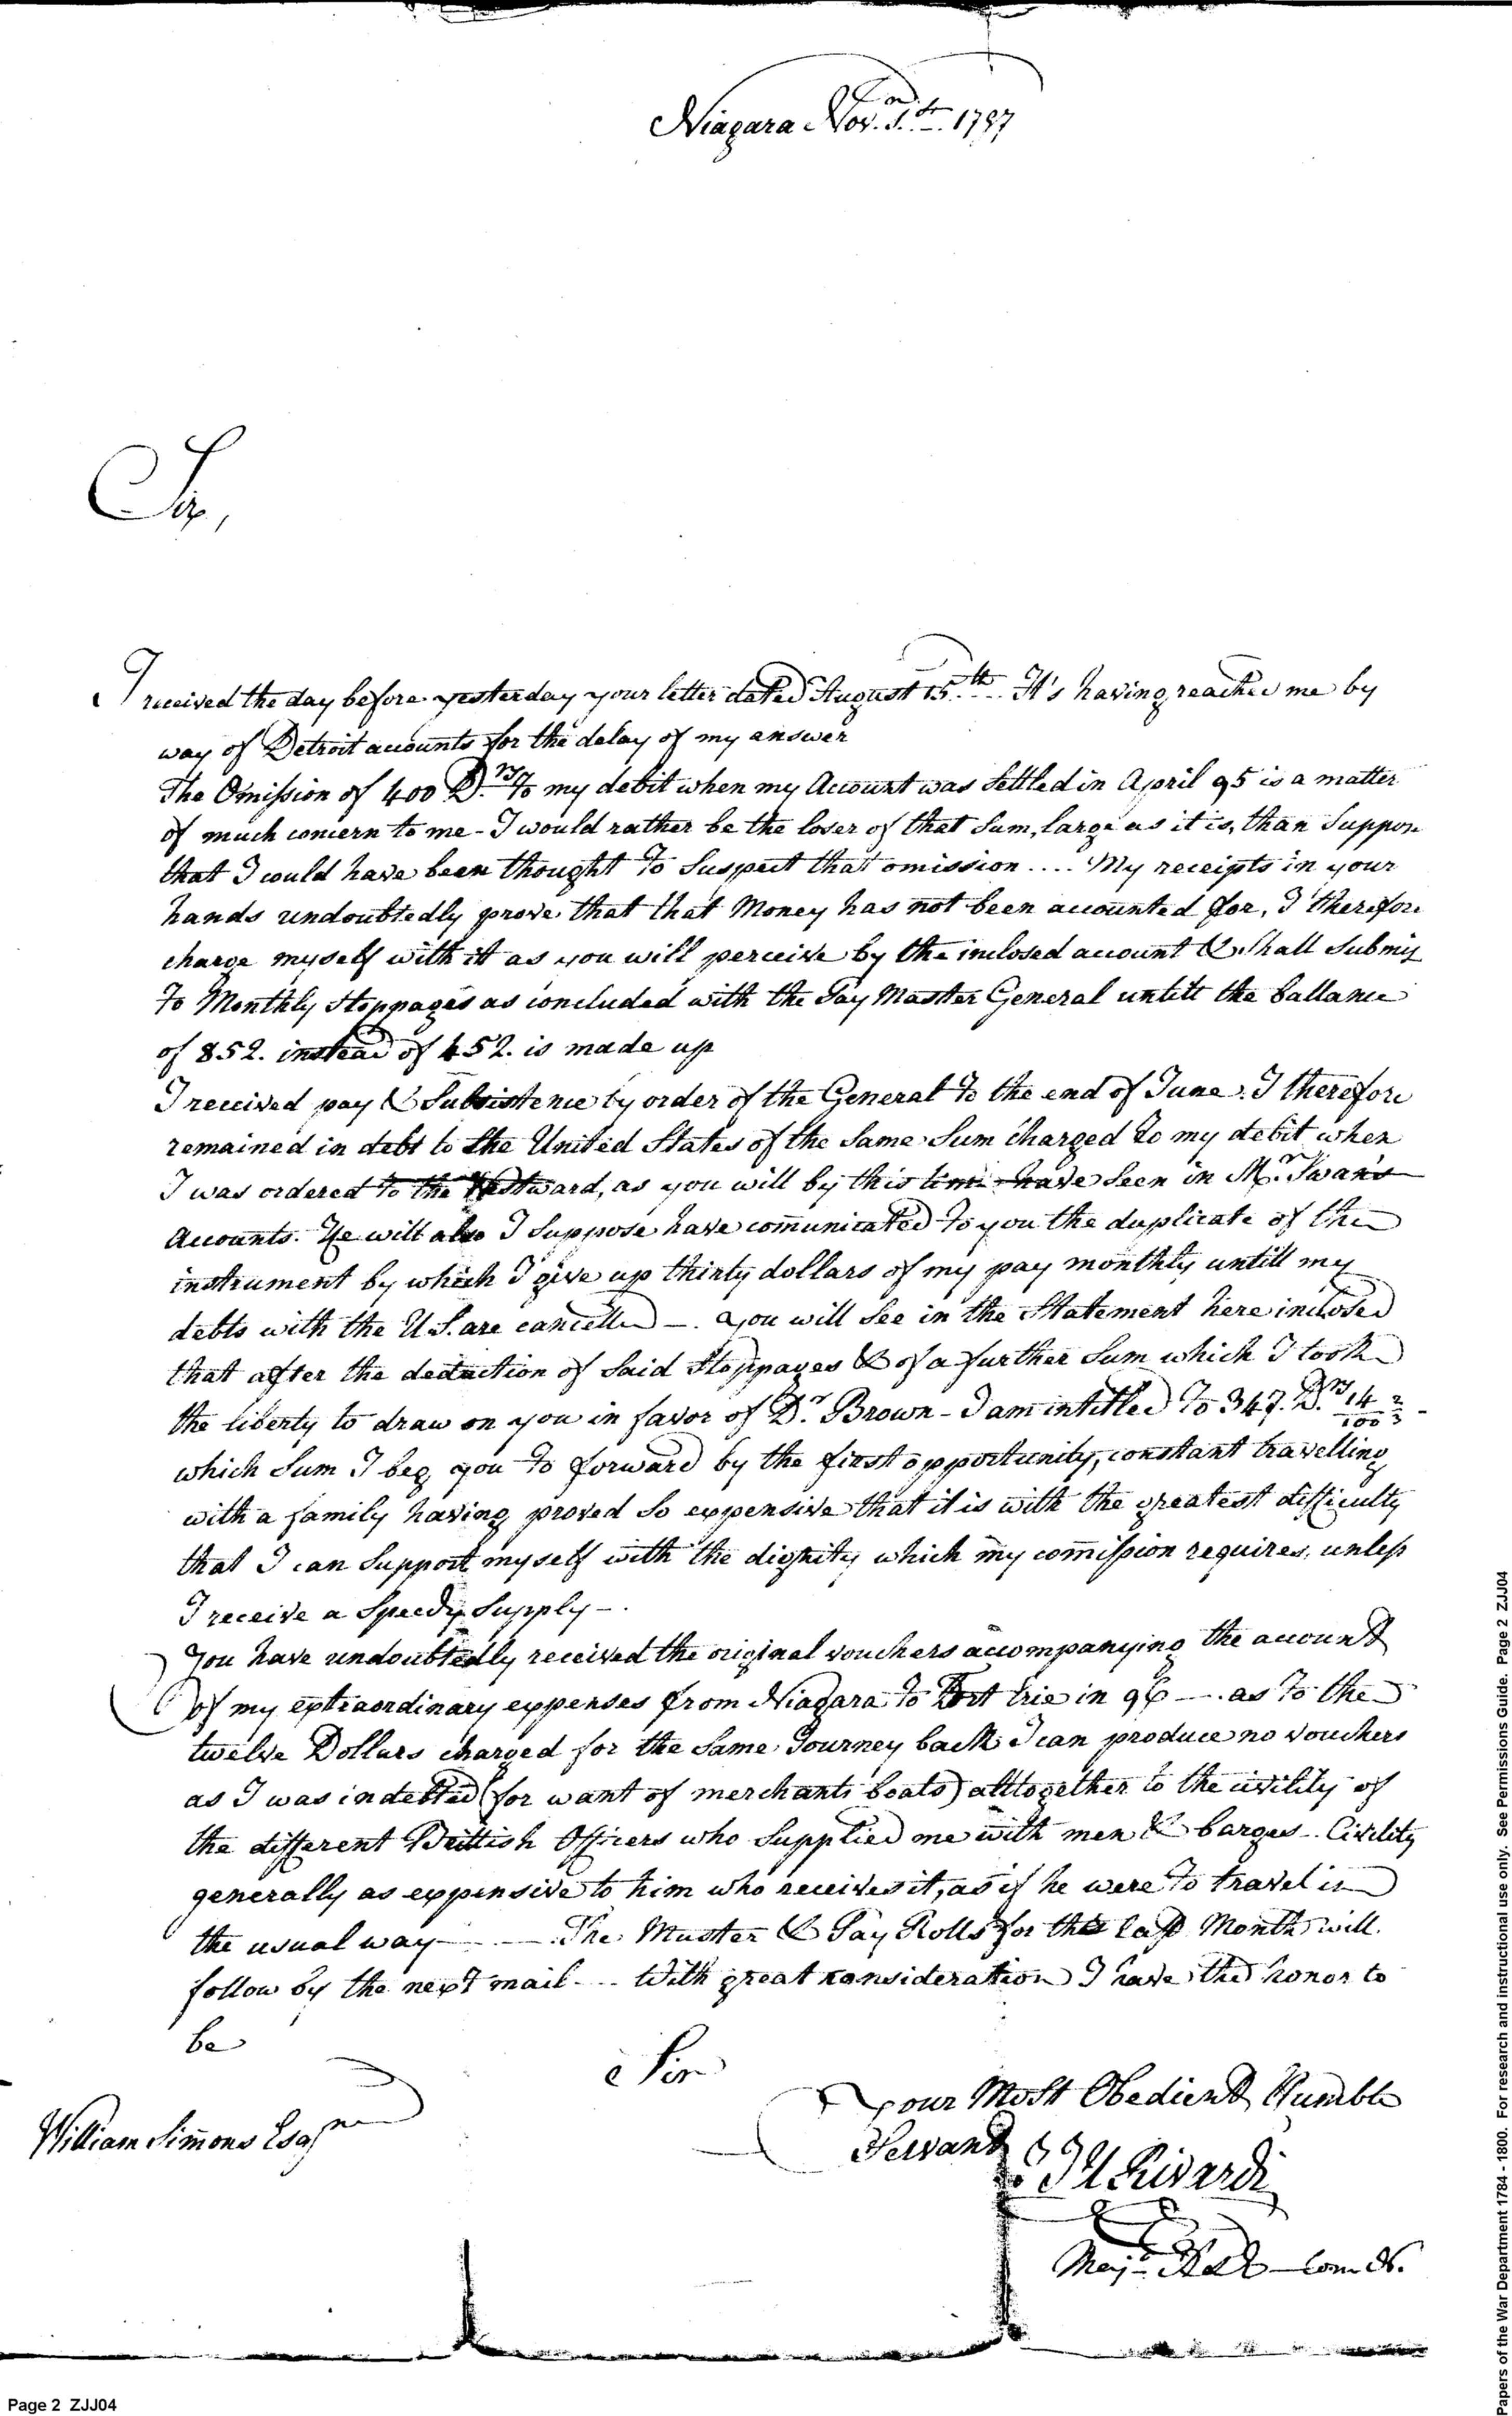 Niagara Nov. 1797
Sir,
I received the day before yesterday your letter dated August 15th. It's having reached me by
way of Detroit accounts for the delay of my answer
The Omission of 400 D.rs To my debit when my Account was Settled in April 95 is a matter
of much concern to me - I would rather be the loser of that Sum, large as it is, than Suppose
that I would have been thought To Suspect that omission .... My receipts in your
hands undoubtedly prove that that Money has not been accounted for, I therefore
charge myself with it as you will perceive by the inclosed account & Shall Submit
To Monthly Stoppages as concluded with the Pay Master General untill the ballance
of 852. instead of 452. is made up
I received pay & Subsistence by order of the General To the end of June. I therefore
remained in debt to the United States of the Same Sum charged to my debit when
I was ordered to the Westward, as you will by this time have Seen in Mr. Swan's
Accounts. He will also I Suppose have comunicated To you the duplicate of the
instrument by which I give up thirty dollars of my pay monthly untill my
debts with the U.S. are cancelled -. you will See in the Statement here inclosed
that after the deduction of Said Stoppages & of a further Sum which I took
the liberty to draw on you in favor of D.r Brown - I am intitled To 347. D.rs 14/100 2/3 -
which Sum I beg you To forward by the first opportunity, constant travelling
with a family having proved So expensive that it is with the greatest difficulty
that I can Support myself with the dignity which my comission requires, unless
I receive a Speedy Supply -.
You have undoubtedly received the original vouchers accompanying the account
of my extraordinary expenses from Niagara To Fort Erie in 96 -. as To the
twelve Dollars charged for the Same Journey back I can produce no vouchers
as I was indebted (for want of merchants boats) alltogether to the civility of
the different Brittish Officers who Supplied me with men & barges - Civility
generally as expensive to him who receives it, as if he were To travel in
the usual way - . The Muster & Pay Rolls for the last Month will
follow by the next mail ... With great consideration I have the honor to
be
Sir
Your Most Obedient Humble
Servant
J J U Rivardi
William Simmons Esqr
Majr
Page 2 ZJJ04
Papers of the War Department 1784 - 1800. For research and instructional use only. See Permissions Guide. Page 2 ZJJ04